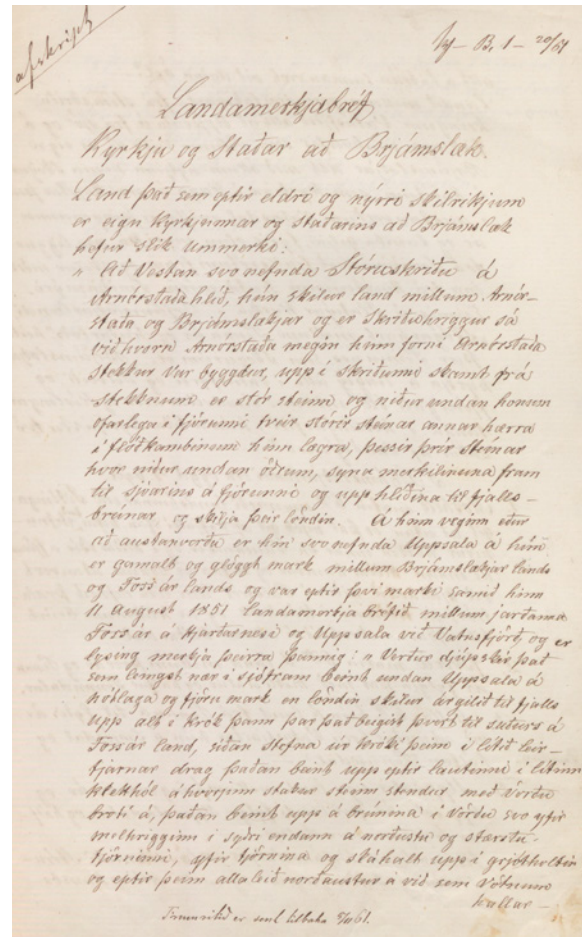 afskript
Ny - B. 1 - 20/61
Landamerkjabréf
Kyrkju og Staðar að Brjámslæk.
Land það sem eptir eldri og nýrri skilrikjum
er eign Kyrkjunnar og Staðarins að Brjámslæk
hefur slik ummerki:
" Að Vestan svo nefnda Stóruskriðu á
Arnórstaða hlíð, hún skilur land millum Arnór-
staða og Brjámslækjar og er Skriðuhriggur sá
við hvorn Arnórstaða megin hinn forni Arnórstaða
stekkur var byggdur, upp í skriðunni skamt frá
stekknum er stór steinn og niður undan honum
ofarlega i fjörunni tveir stórir steinar annar hærra
i flóðkambinum hinn lægra, þessir þrír steinar
hvor niður undan öðrum, syna merkilinuna fram
til sjóarins á fjörunni og upp hlíðina til fjalls-
brúnar og skilja þeir löndin. Á hinn veginn eður
að austanverðu er hin svo nefnda Uppsala á hún
er gamalt og glöggt mark millum Brjámslækjar lands
og Fossár lands og var eptir þvi marki samið hinn
11 August 1851 landamerkja bréfið millum jarðanna
Fossár á Hjarðarnesi og Uppsala við Vatnsfjörð, og er
lysing merkja þeirra þannig: " Verður djúpskér það
sem leingst nær i sjófram beint undan Uppsala á
nótlaga og fjöru mark en löndin skilur árgilið til fjalls
upp alt i krók þann þar það beigist þvert til suðurs á
Fossár land, siðan stefna úr króki þeim i litið leir-
tjarnar drag þaðan beint upp eptir lautinni i litinn
klettkól á hvorjum stakur steinn stendur með vörðu
broti á, þaðan beint upp á brúnina i Vörðu svo yfir
melhrigginn i syðri endann á norðustu og stærstu
tjörninni, yfir tjörnina og skáhalt upp i grjótholtin
og eptir þeim alla leið norðaustur á við sem Vötnum
hallar -
Frumritið er sent tilbaka